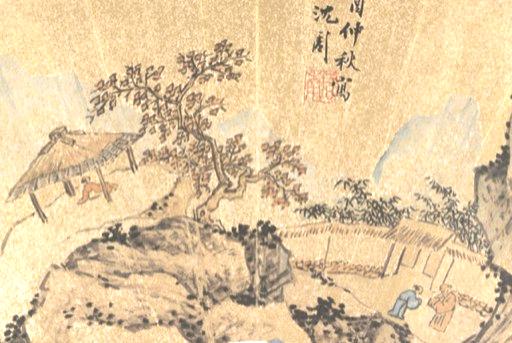 仲秋寫
沈周